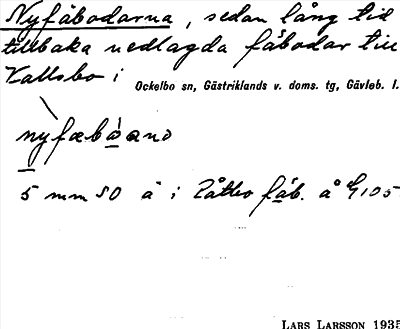 Nyfäbodarna, sedan lång tid
tillbaka nedlagda fäbodar till
Kallsbo i Ockelbo sn, Gästriklands v. doms. tg, Gävleb. l.
5 mm SO ä i Råtbo fäb. å
LARS LARSSON 1935